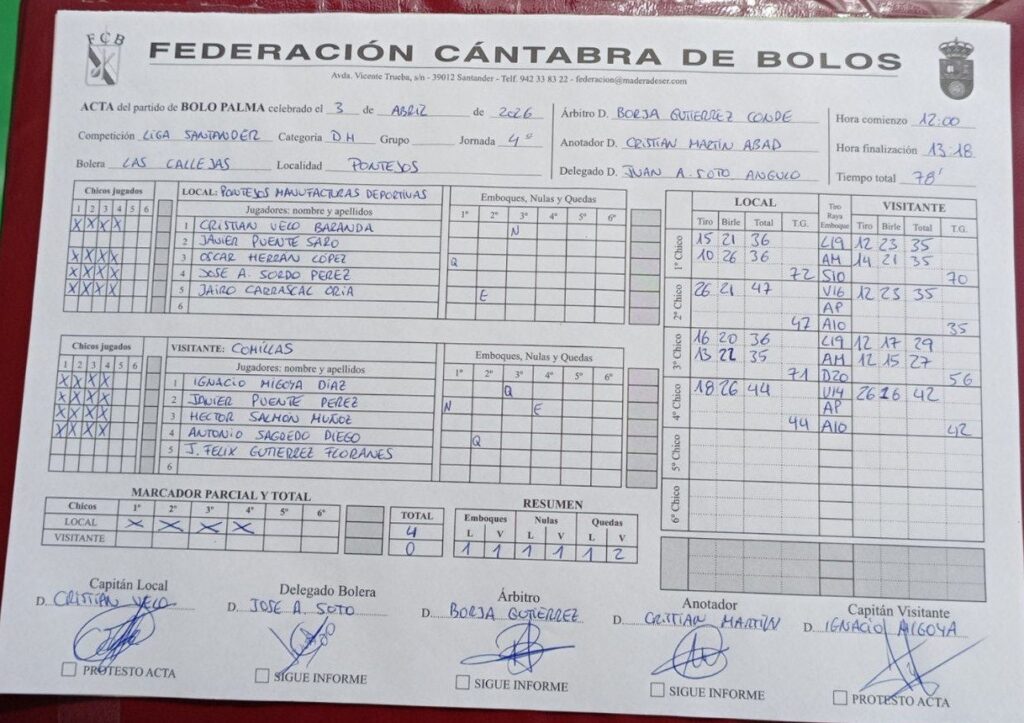 FCB
FEDERACIÓN CÁNTABRA DE BOLOS
Avda. Vicente Trueba, s/n - 39012 Santander - Telf. 942 33 83 22 - federacion@maderadeser.com
ACTA del partido de BOLO PALMA celebrado el 3 de ABRIL de 2026
Competición LIGA SANTANDER Categoria DH Grupo Jornada 4ª
Bolera LAS CALLEJAS Localidad PONTEJOS
Árbitro D. BORJA GUTIERREZ CONDE
Anotador D. CRISTIAN MARTIN ABAD
Delegado D. JUAN A. SOTO ANGULO
Hora comienzo 12:00
Hora finalización 13:18
Tiempo total 78'
Chicos jugados
1 2 3 4 5 6
X X X X
X X X X
X X X X
X X X X
LOCAL: PONTEJOS MANUFACTURAS DEPORTIVAS
Jugadores: nombre y apellidos
1 CRISTIAN VELO BARANDA
2 JAVIER PUENTE SARO
3 OSCAR HERRÁN LÓPEZ
4 JOSE A. SORDO PEREZ
5 JAIRO CARRASCAL ORIA
6
Emboques, Nulas y Quedas
1º 2º 3º 4º 5º 6º
N
Q
E
Chicos jugados
1 2 3 4 5 6
X X X X
X X X X
X X X X
X X X X
VISITANTE: COMILLAS
Jugadores: nombre y apellidos
1 IGNACIO MIGOYA DIAZ
2 JAVIER PUENTE PEREZ
3 HECTOR SALMÓN MUÑOZ
4 ANTONIO SAGREDO DIEGO
5 J. FELIX GUTIERREZ FLORANES
6
Emboques, Nulas y Quedas
1º 2º 3º 4º 5º 6º
Q
N E
Q
LOCAL Tiro Raya Emboque VISITANTE
Tiro Birle Total T.G. Tiro Birle Total T.G.
1º Chico
15 21 36 L19 12 23 35
10 26 36 AM 14 21 35
72 S10 70
2º Chico
26 21 47 V16 12 23 35
AP
47 A10 35
3º Chico
16 20 36 L19 12 17 29
13 22 35 AM 12 15 27
71 D20 56
4º Chico
18 26 44 V14 26 16 42
AP
44 A10 42
5º Chico
6º Chico
MARCADOR PARCIAL Y TOTAL
Chicos 1º 2º 3º 4º 5º 6º
LOCAL X X X X
VISITANTE
TOTAL
4
0
RESUMEN
Emboques Nulas Quedas
L V L V L V
1 1 1 1 1 2
Capitán Local
D. CRISTIAN VELO
PROTESTO ACTA
Delegado Bolera
D. JOSE A. SOTO
SIGUE INFORME
Árbitro
D. BORJA GUTIERREZ
SIGUE INFORME
Anotador
D. CRISTIAN MARTIN
SIGUE INFORME
Capitán Visitante
D. IGNACIO MIGOYA
PROTESTO ACTA